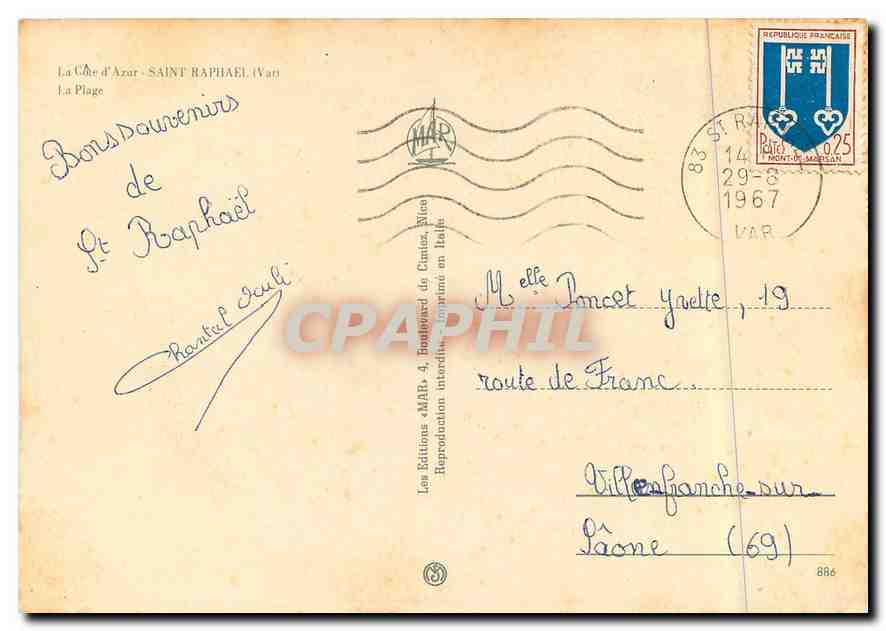 La Côte d'Azur - SAINT RAPHAEL (Var)
La Plage
Bons souvenirs
de
St Raphaël
Chantal
MAR
Les Editions «MAR» 4, Boulevard de Cimiez, Nice
Reproduction interdite Imprimé en Italie
REPUBLIQUE FRANÇAISE
POSTES 0,25
MONT-DE-MARSAN
83 ST RA
14
29-8
1967
VAR
Melle Poncet Yvette, 19
route de Franc.
Villenfranche-sur
Sâone (69)
886
CPAPHIL